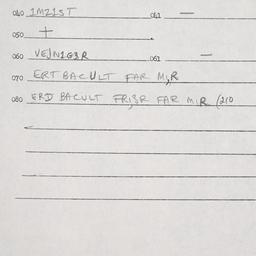 040 1M21ST 041 —
050 +
060 VEJN1G3R 061 —
070 ERT BACULT FAR M1R
080 ERD BACULT FR13R FAR M1R (210